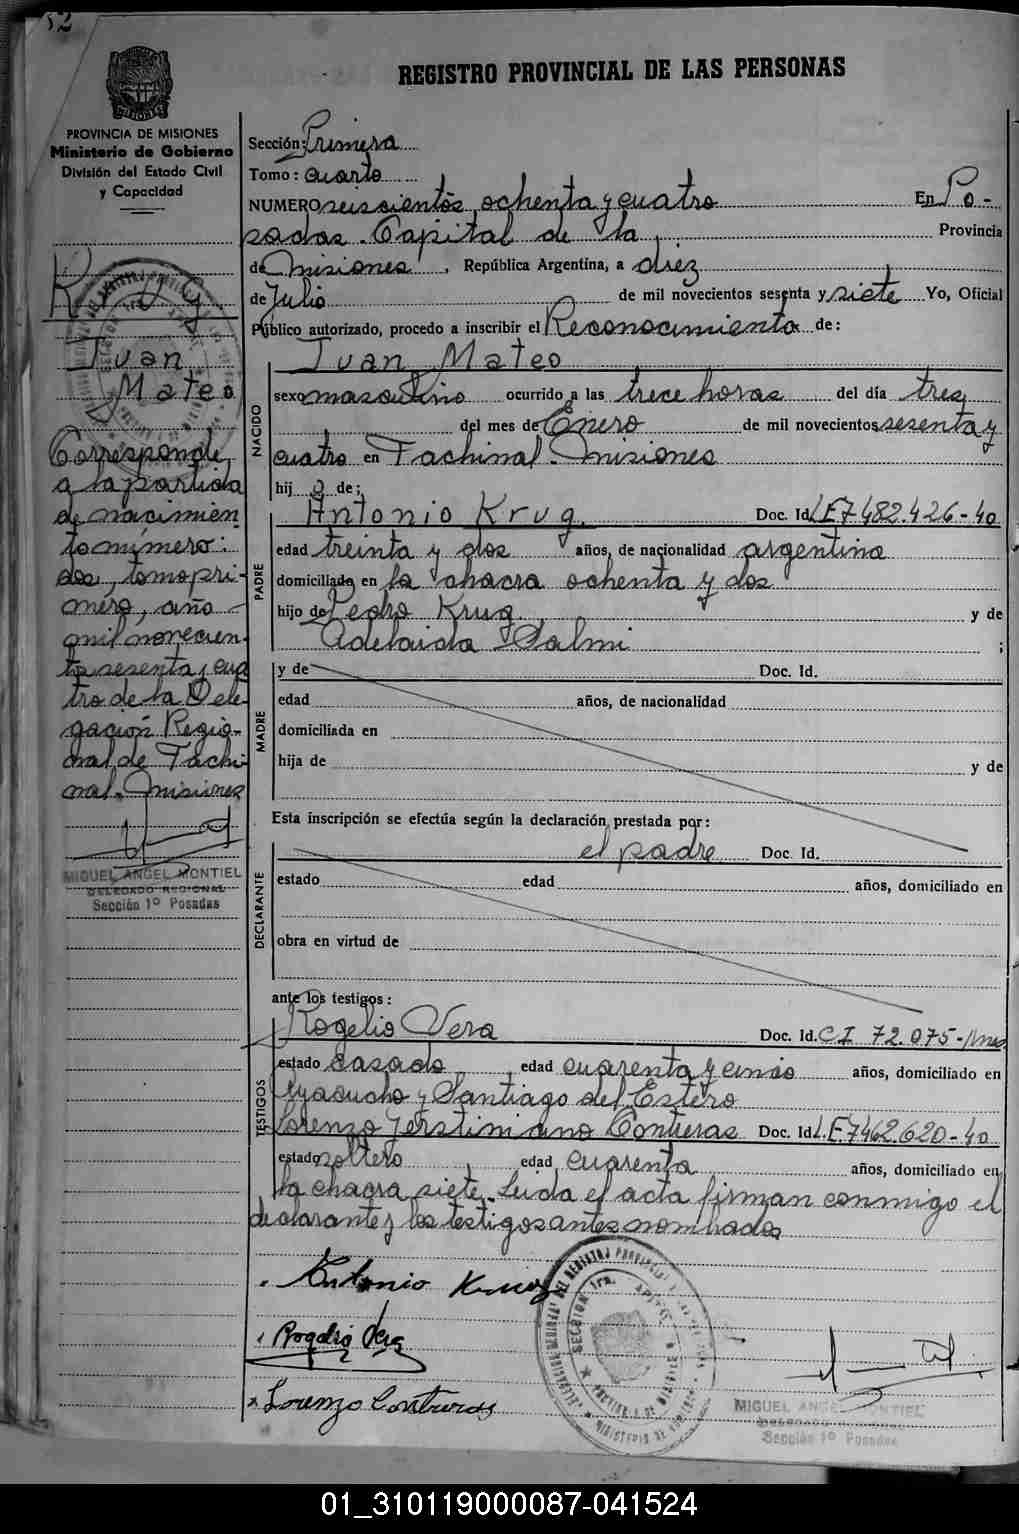 52
REGISTRO PROVINCIAL DE LAS PERSONAS
PROVINCIA DE MISIONES
Ministerio de Gobierno
División del Estado Civil
y Capacidad
Krug
Juan
Mateo
Corresponde
a la partida
de nacimien
to número:
dos, tomo pri-
mero, año
mil novecien
to sesenta y cua
tro de la Dele-
gación Regio-
nal de Tachi
nal. Misiones
MIGUEL ANGEL MONTIEL
DELEGADO REGIONAL
Sección 1º Posadas
Sección: Primera
Tomo: cuarto
NUMERO seiscientos ochenta y cuatro En Po-
sadas. Capital de la Provincia
de Misiones, República Argentina, a diez
de Julio de mil novecientos sesenta y siete Yo, Oficial
Público autorizado, procedo a inscribir el Reconocimiento de:
NACIDO
Juan Mateo
sexo masculino ocurrido a las trece horas del día tres
del mes de Enero de mil novecientos sesenta y
cuatro en Tachinal. Misiones
hijo de:
PADRE
Antonio Krug. Doc. Id. LE 7482.426-40
edad treinta y dos años, de nacionalidad argentina
domiciliado en la chacra ochenta y dos
hijo de Pedro Krug y de
Adelaida Salmi ;
MADRE
y de Doc. Id.
edad años, de nacionalidad
domiciliada en
hija de y de
Esta inscripción se efectúa según la declaración prestada por:
DECLARANTE
el padre Doc. Id.
estado edad años, domiciliado en
obra en virtud de
ante los testigos:
TESTIGOS
Rogelio Vera Doc. Id. CI 72.075-Mnes
estado casado edad cuarenta y cinco años, domiciliado en
Ayacucho y Santiago del Estero
Lorenzo Contreras Doc. Id. L.E 7462.620-40
estado soltero edad cuarenta años, domiciliado en
la chacra siete. Leida el acta firman conmigo el
declarante y los testigos antes nombrados
Antonio Krug
Rogelio Vera
Lorenzo Contreras
MIGUEL ANGEL MONTIEL
DELEGADO REGIONAL
Sección 1º Posadas
01_310119000087-041524